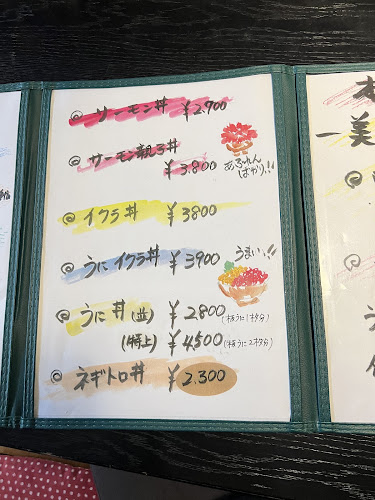 ◎ サーモン丼 ¥2.700
◎ サーモン親子丼
¥3.800
あふれん
ばかり!!
◎ イクラ丼 ¥3800
◎ うにイクラ丼 ¥3900
うまい!!
◎ うに丼 (並) ¥2800
(特上) ¥4,500
◎ ネギトロ丼 ¥2.300
一美